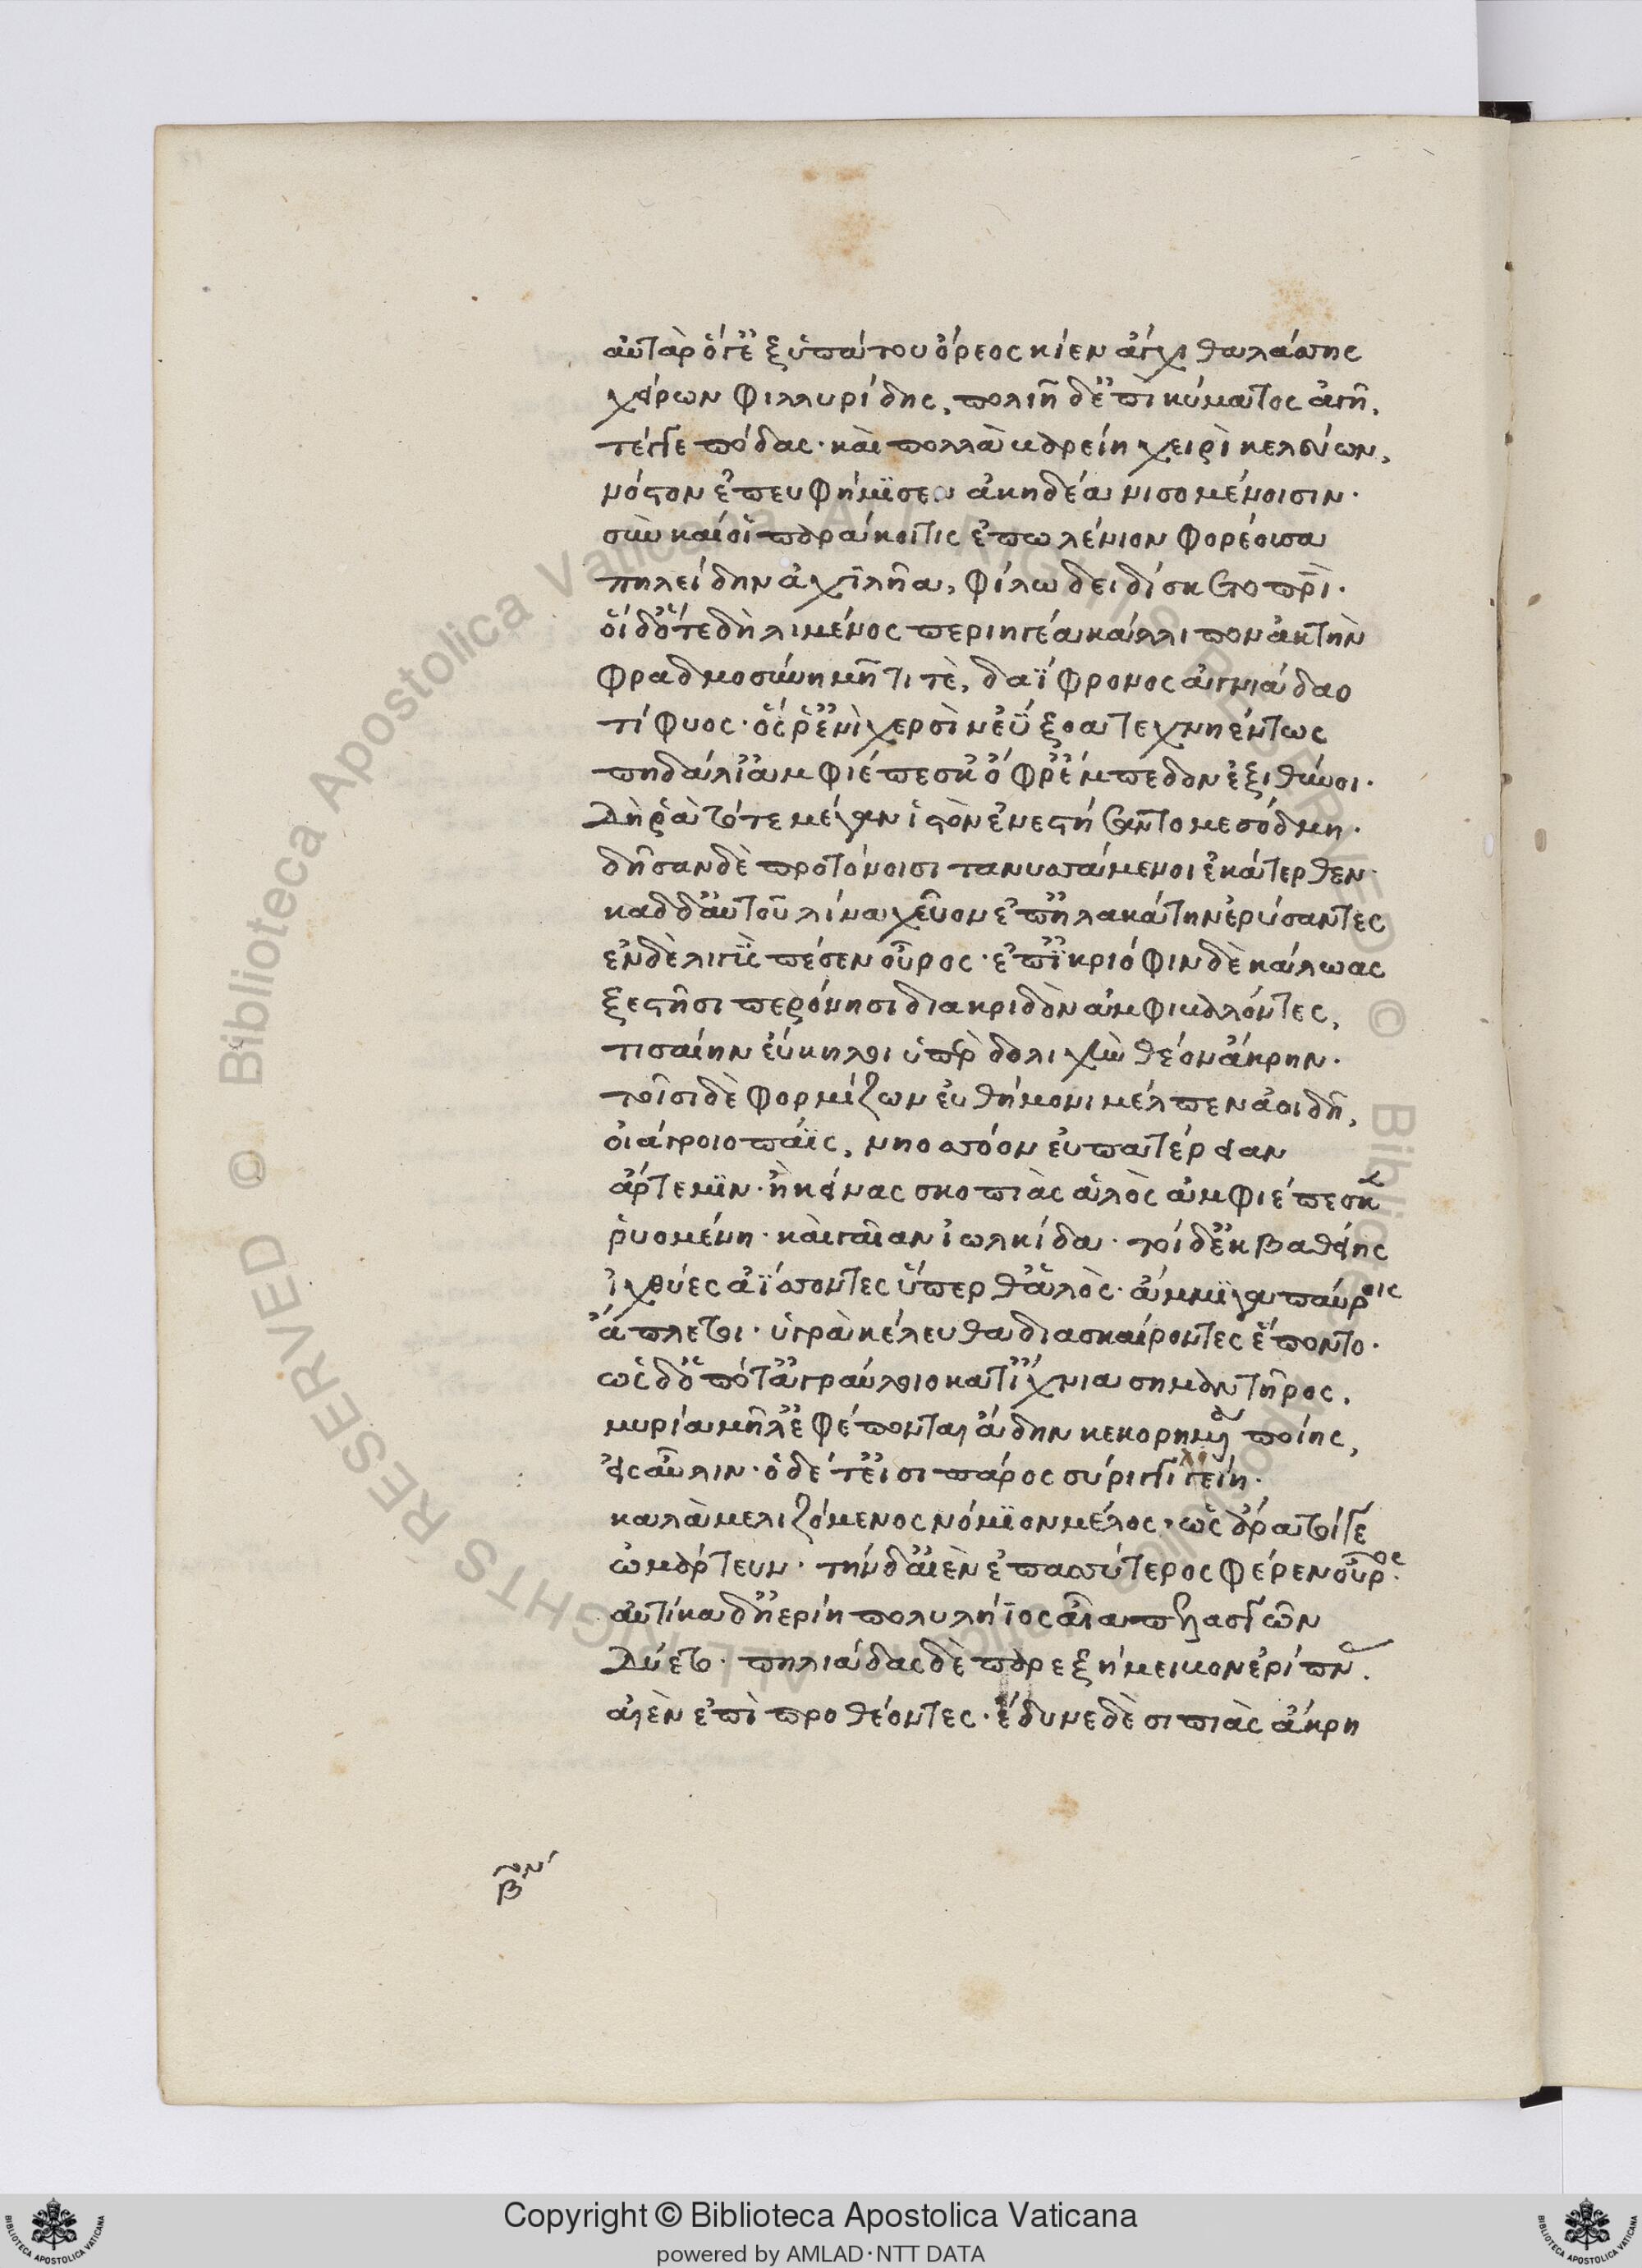 αὐτὰρ ὅγ' ἐξ ὑπάτου ὄρεος κίεν ἄγχι θαλάσσης
χείρων φιλλυρίδης, πολιῆ δ' ἐπὶ κύματος ἀγῆ,
τέγγε πόδας· καὶ πολλὰ βαρείη χειρὶ κελεύων,
νόστον ἐπευφήμισεν ἀκηδέα νισομένοισιν·
σὺν καί οἱ παράκοιτις ἐπωλένιον φορέουσα
πηλείδην ἀχιλῆα, φίλω δειδίσκετο πατρί·
οἱ δ' ὅτε δὴ λιμένος περιηγέα κάλλιπον ἀκτὴν
φραδμοσύνη μήτι τὲ, δαΐφρονος ἁγνιάδαο
τίφυος· ὅς ῥ' ἐνὶ χερσὶν ἐΰξοα τεχνηέντως
πηδάλι' ἀμφιέπεσκ' ὄφρ' ἔμπεδον ἐξιθύνοι·
δὴ ῥὰ τότε μέγαν ἱστὸν ἐνεστήσαντο μεσόδμη·
δῆσαν δὲ προτόνοισι τανυσσάμενοι ἑκάτερθεν·
καδδ' αὐτοῦ λίνα χεῦον ἐπ' ἠλακάτην ἐρύσαντες
ἐν δὲ λιγὺς πέσεν οὖρος· ἐπ' ἰκριόφιν δὲ κάλωας
ξεστῆσι περόνησι διακριδὸν ἀμφιβαλόντες,
τισαίην εὔκηλοι ὑπὲρ δολιχὴν θέον ἄκρην·
τοῖσι δὲ φορμίζων εὐθήμονι μέλπεν ἀοιδῆ,
οἰάγροιο πάϊς, νηοσσόον εὐπατέρειαν
ἄρτεμιν· ἣ κείνας σκοπιὰς ἁλὸς ἀμφιέπεσκε
ῥυομένη· καὶ γαῖαν ἰωλκίδα· τοὶ δ' ἐκ βαθείης
ἰχθύες ἀΐσσοντες ὕπερθ' ἁλὸς· ἄμμιγα παύροις
ἄπλετοι· ὑγρὰ κέλευθα διασκαίροντες ἕποντο·
ὡς δ' ὁπότ' ἀγραύλοιο κατ' ἴχνια σημαντῆρος,
μυρία μῆλ' ἐφέπονται ἄδην κεκορημένα ποίης,
εἰς αὖλιν· ὁ δέ τ' εἶσι πάρος σύριγγι λιγείη·
καλὰ μελιζόμενος νόμιον μέλος· ὣς ἄρα τοίγε
ὡμάρτευν· τὴν δ' αἰὲν ἐπασσύτερος φέρεν οὖρος·
αὐτίκα δ' ἠερίη πολυλήϊος αἶα πελασγῶν
δύετο· πηλιάδας δὲ παρεξήμειβον ἐρίπνας·
αἰὲν ἐπὶ προθέοντες· ἔδυνε δὲ σιπιὰς ἄκρη